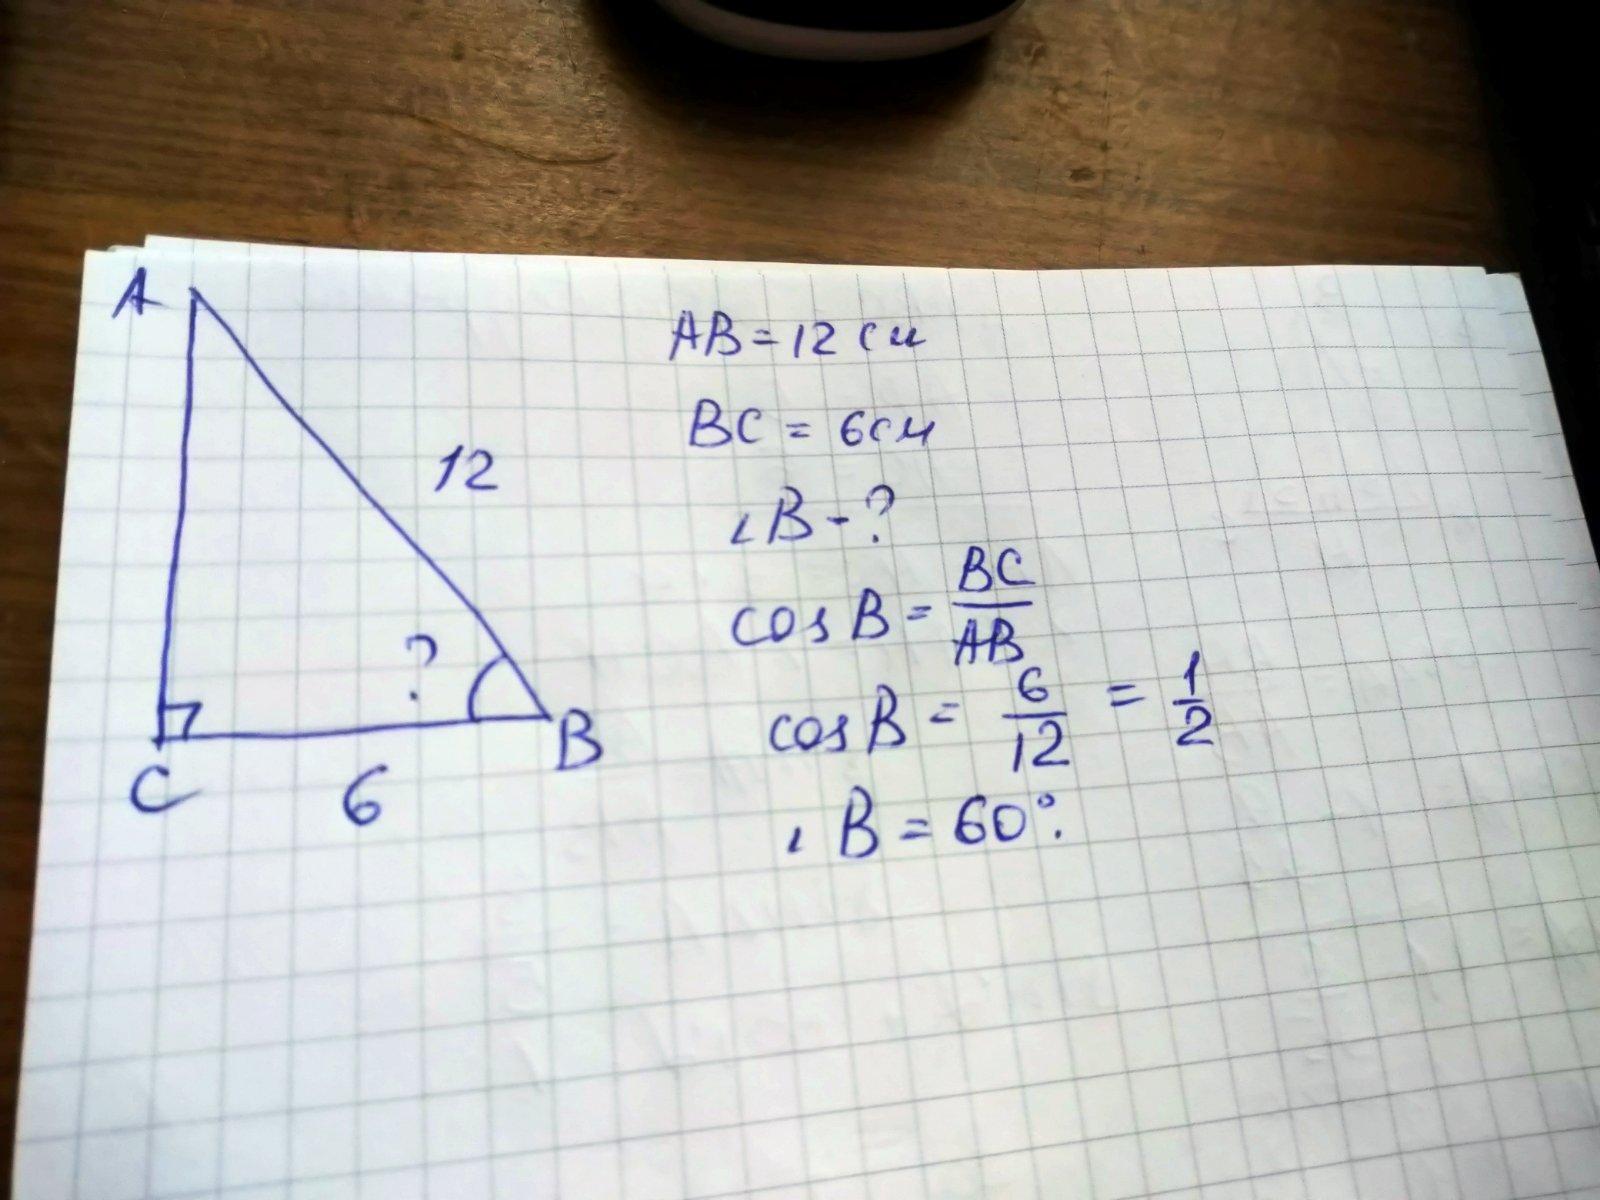 A
12
?
C
6
B
AB = 12 см
BC = 6см
∠B - ?
cos B = BC/AB
cos B = 6/12 = 1/2
∠B = 60°.